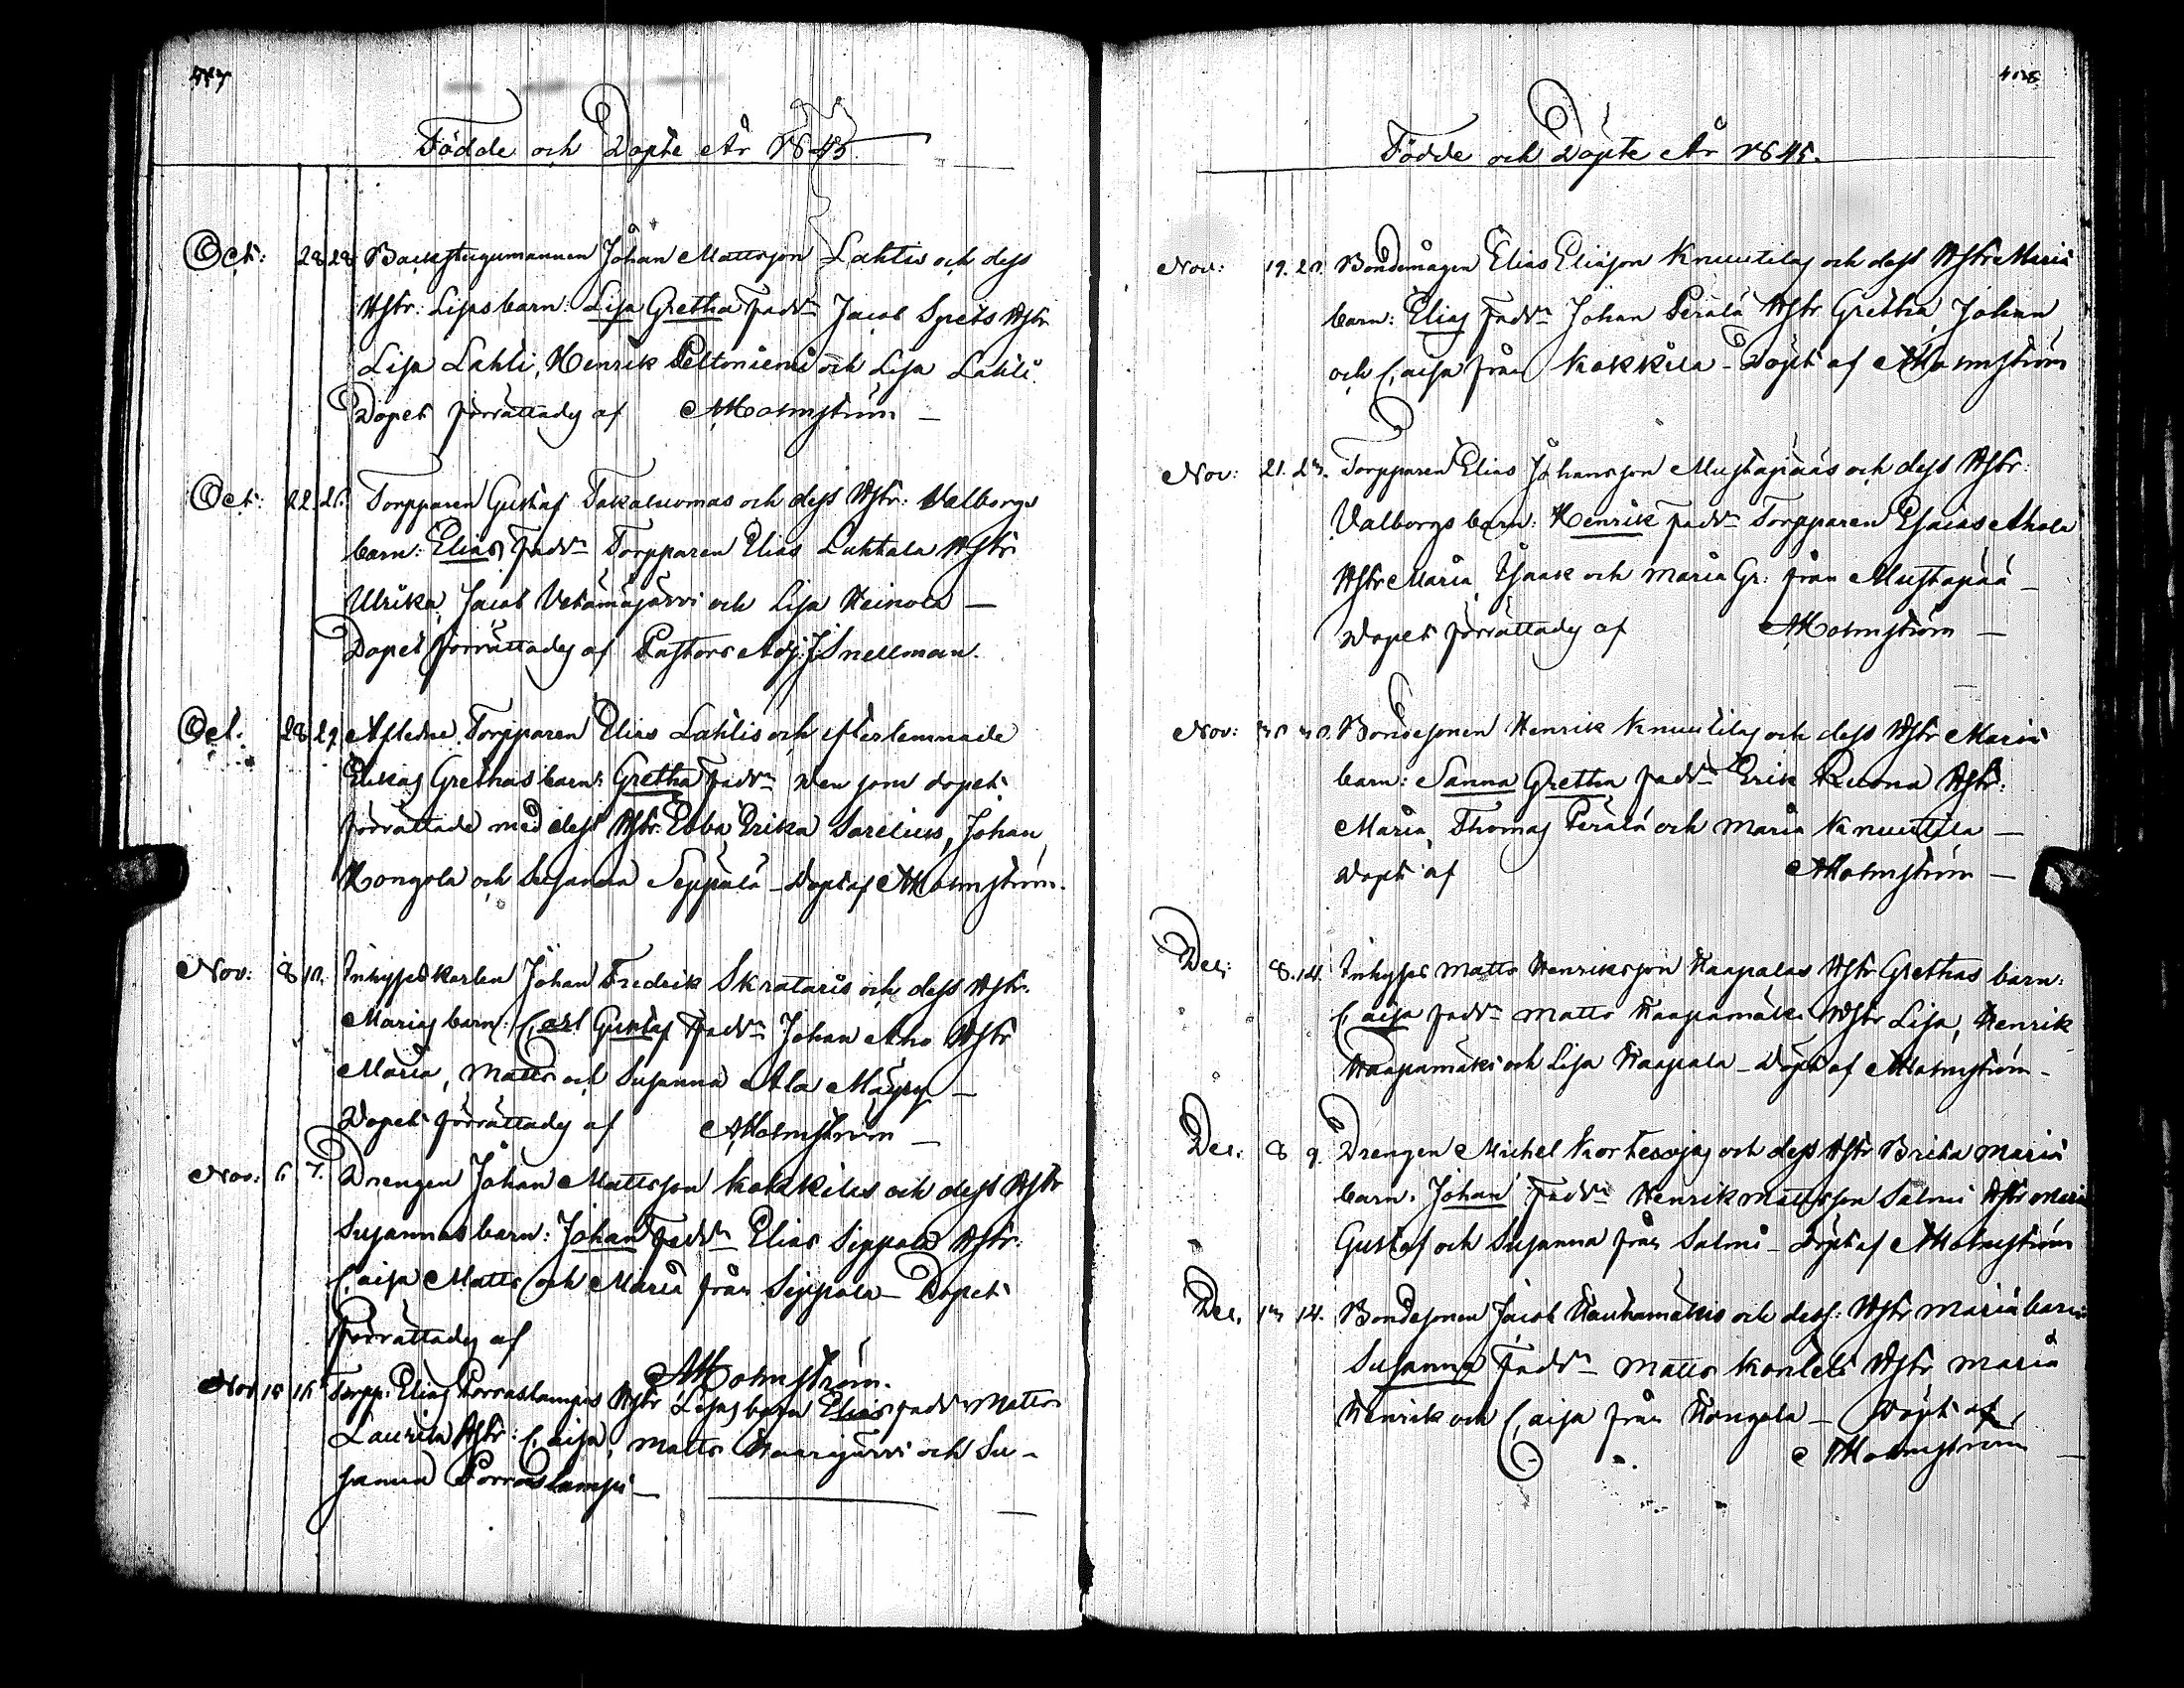 Födde och Döpte År 1845
Oct: 28 28 Backstugumannen Johan Mattsson Lahtis och dess
Hstr: Lisas barn: Lisa Gretha Faddr Jacob Spets Hstr
Lisa Lahti, Henrik Peltoniemi och Lisa Lahti
Dopet förrättades af AHolmström —
Oct: 22. 25. Torpparen Gustaf Takaluomas och dess Hstr: Valborgs
barn: Elias, Faddr Torpparen Elias Luhtala Hstr
Ulrika, Jacob Vetämäjärvi och Lisa Heinola —
Dopet förrättades af Pastors Adj: J. Snellman.
Oct. 28 29. Afledne Torpparen Elias Lahtis och efterlemnade
Enkas Grethas barn: Gretha Faddr Den som dopet
förrättade med dess Hstr: Ebba Erika Sarelius, Johan
Kongola och Susanna Seppälä – Döpt af AHolmström.
Nov: 8 10. Inhyseskarlen Johan Fredrik Skrataris och dess Hstr.
Marias barn: Carl Gustaf Faddr Johan Aho Hstr
Maria, Matts och Susanna Ala Mäyry —
Dopet förrättades af AHolmström —
Nov: 6 7. Drengen Johan Mattsson Kokkilas och dess Hstr
Susannas barn: Johan Faddr Elias Sippola Hstr.
Caisa Matts och Maria från Sippola – Dopet
förrättades af
AHolmström.
Nov 15 16 Torpp: Elias Porraslampis Hstr Lisas barn Elias Faddr Matts
Laurila Hstr: Caisa, Matts Haarijärvi och Su-
sanna Porraslampi —
Födde och Döpte År 1845.
Nov: 19. 20. Bondemågen Elias Eliasson Knuutilas och dess Hstr Maria
barn: Elias Faddr Johan Perälä Hstr Gretha, Johan
och Caisa från Kokkila – Döpt af AHolmström
Nov: 21. 23. Torpparen Elias Johansson Mustapääs och dess Hstr:
Valborgs barn: Henrik Faddr Torpparen Esaias Ahola
Hstr Maria, Isaak och Maria Gr: från Mustapää —
Dopet förrättades af AHolmström —
Nov: 30 30. Bondesonen Henrik Knuutilas och dess Hstr Maria
barn: Sanna Gretha Faddr Erik Ruona Hstr:
Maria, Thomas Perälä och Maria Knuutila —
Döpt af AHolmström —
Dec: 8. 14. Inhyses Matts Henriksson Haapalas Hstr Grethas barn:
Caisa Faddr Matts Haapamäki Hstr Lisa, Henrik
Haapamäki och Lisa Haapala – Döpt af AHolmström –
Dec: 8 9. Drengen Michel Kortesojas och dess Hstr Brita Maria
barn. Johan Faddr Henrik Mattsson Salmi Hstr Maria
Gustaf och Susanna från Salmi – Döpt af AHolmström
Dec. 13 14. Bondesonen Jacob Kauhamäkis och dess: Hstr Maria barn
Susanna Faddr Matts Hstr Maria
Henrik och Caisa från Kongola – Döpt af
AHolmström —